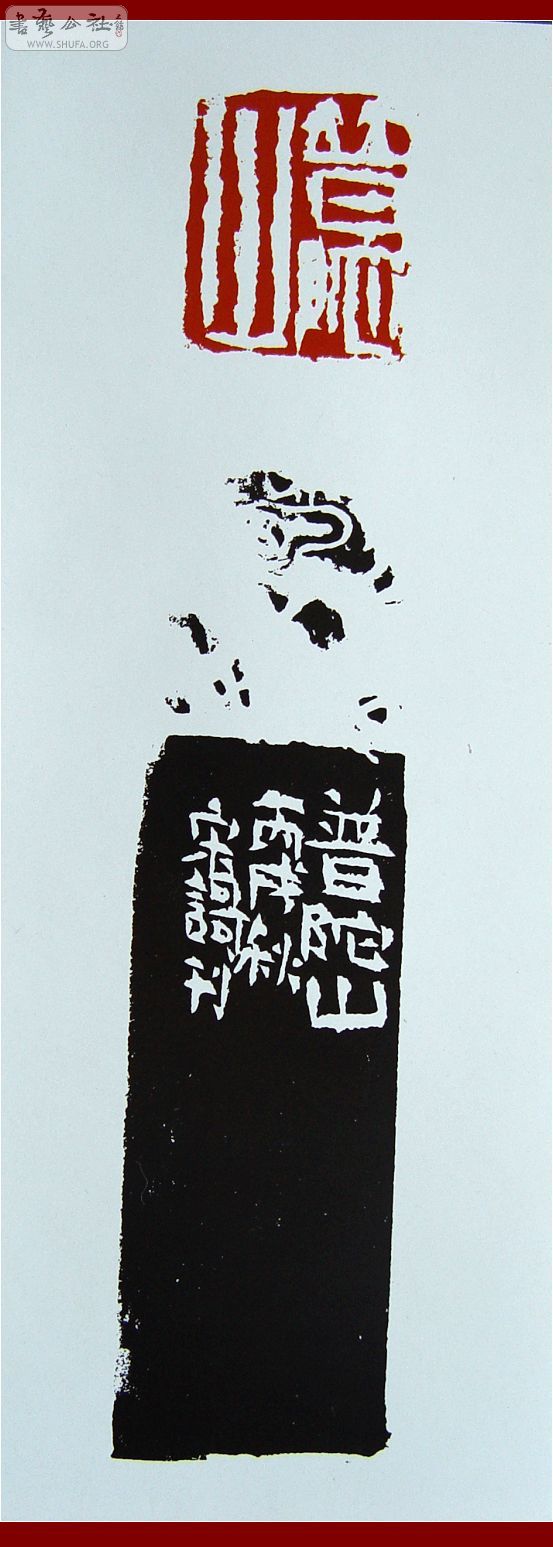 書藝公社
WWW.SHUFA.ORG
普陀
山
普陀山
丙戌秋